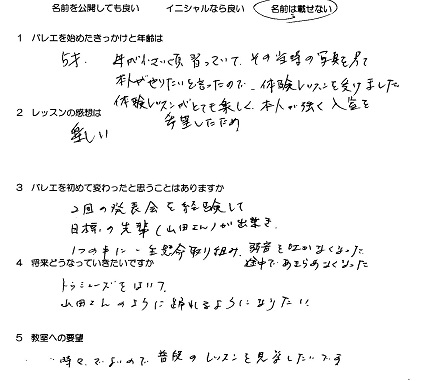 名前を公開しても良い イニシャルなら良い 名前は載せない
1 バレエを始めたきっかけと年齢は
5才. 母が小さい頃 習っていて、その当時の写真を見て
本人がやりたいと言ったので、体験レッスンを受けました
体験レッスンがとても楽しく、本人が強く入室を
希望したため
2 レッスンの感想は
楽しい
3 バレエを初めて変わったと思うことはありますか
2回の発表会を経験して
目標の先輩(山田さん)が出来き、
1つの事に一生懸命取り組み、弱音を吐かなくなった
途中であきらめなくなった
4 将来どうなっていきたいですか
トゥシューズをはいて、
山田さんのように踊れるようになりたい
5 教室への要望
時々、でよいので普段のレッスンを見学したいです